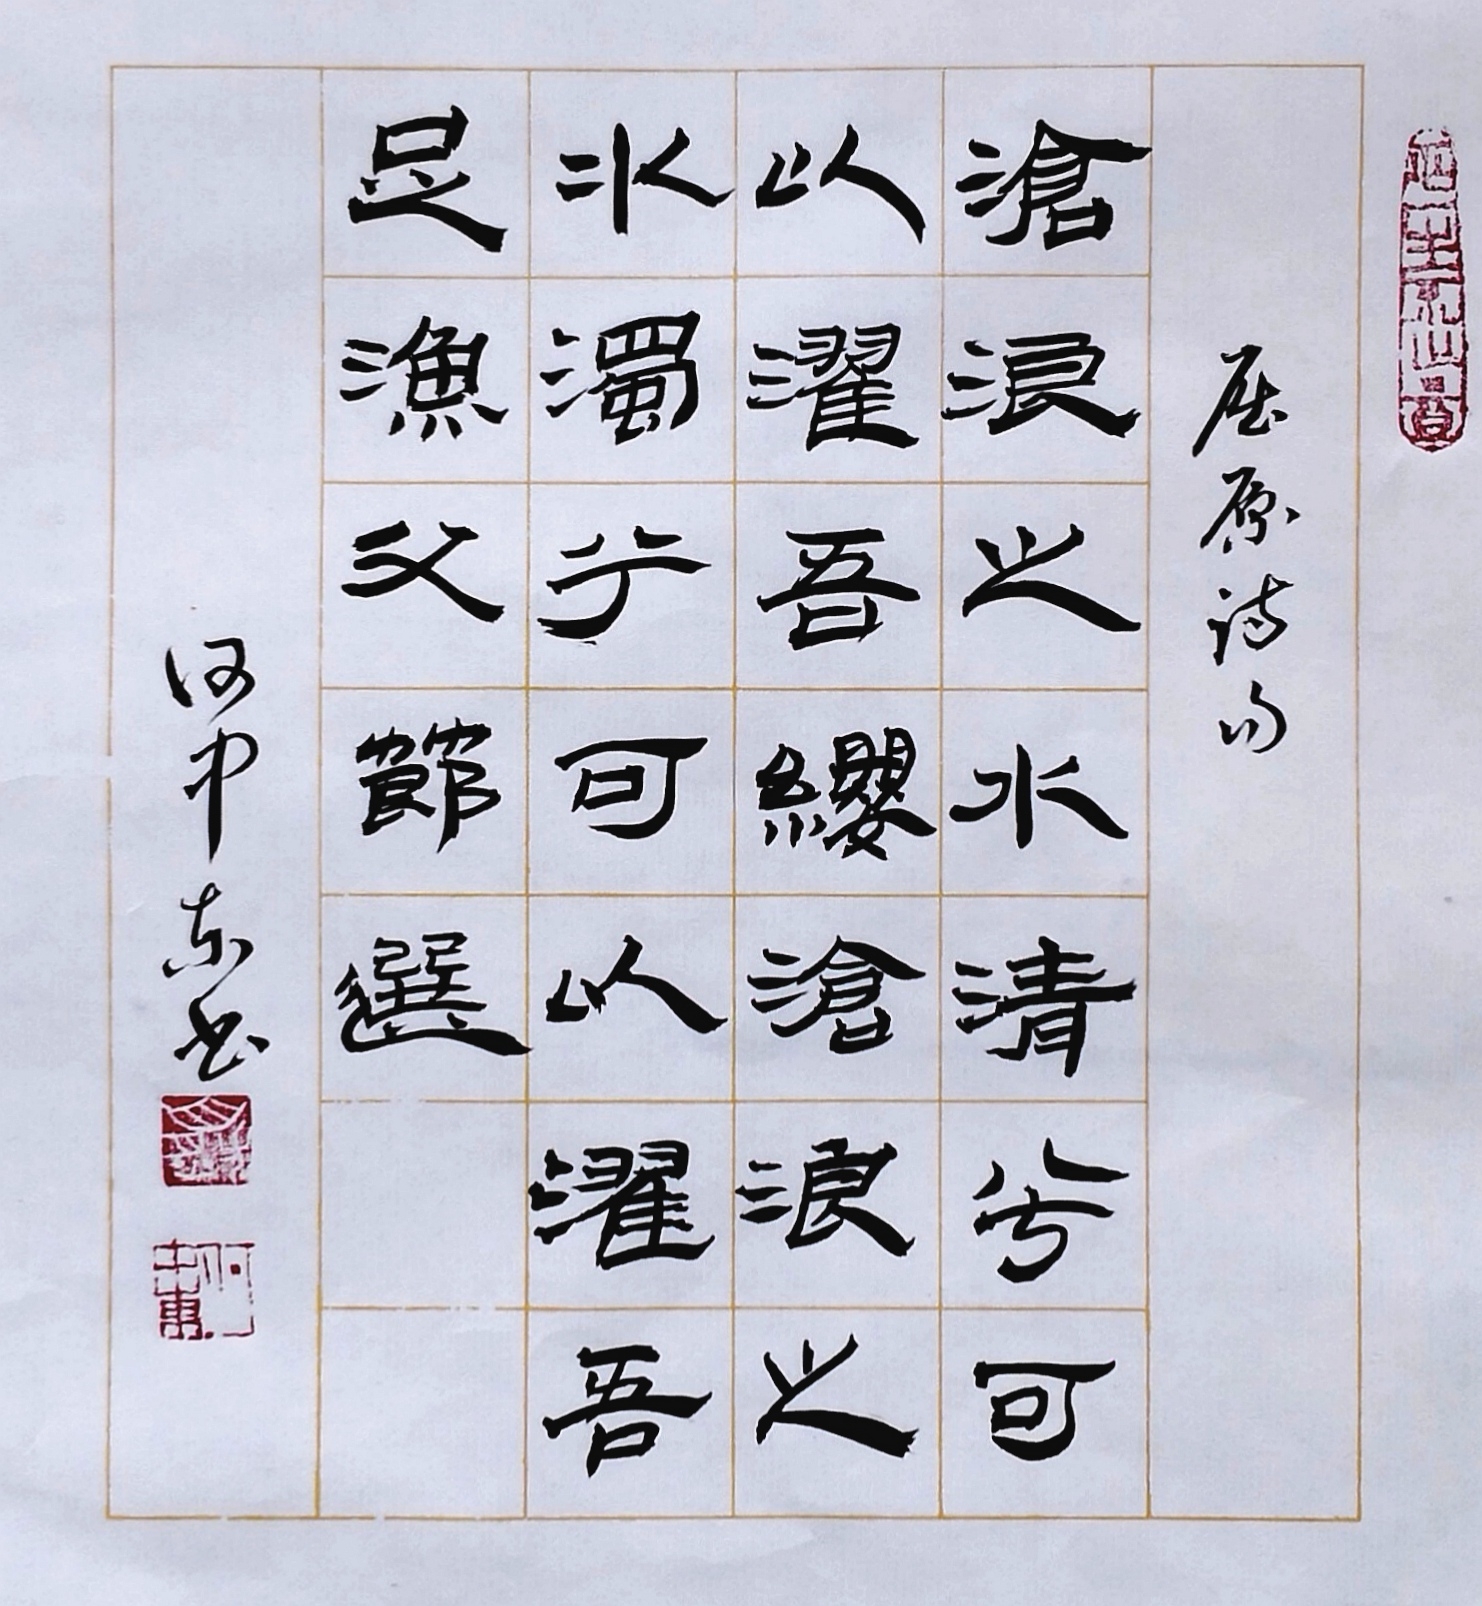 屈原詩句
滄浪之水清兮可
以濯吾纓滄浪之
水濁兮可以濯吾
足漁父節選
何中東書
何中東